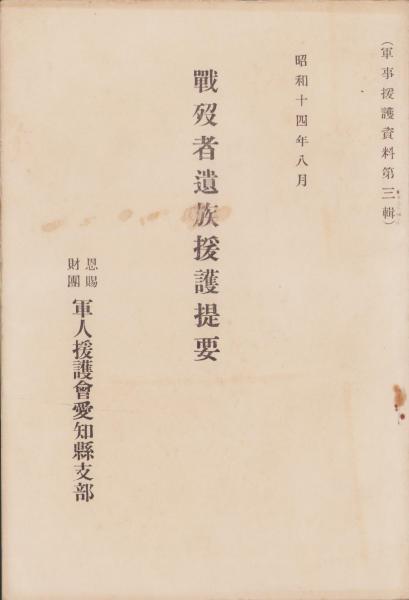 (軍事援護資料第三輯)
昭和十四年八月
戰歿者遺族援護提要
恩賜
財團
軍人援護會愛知縣支部